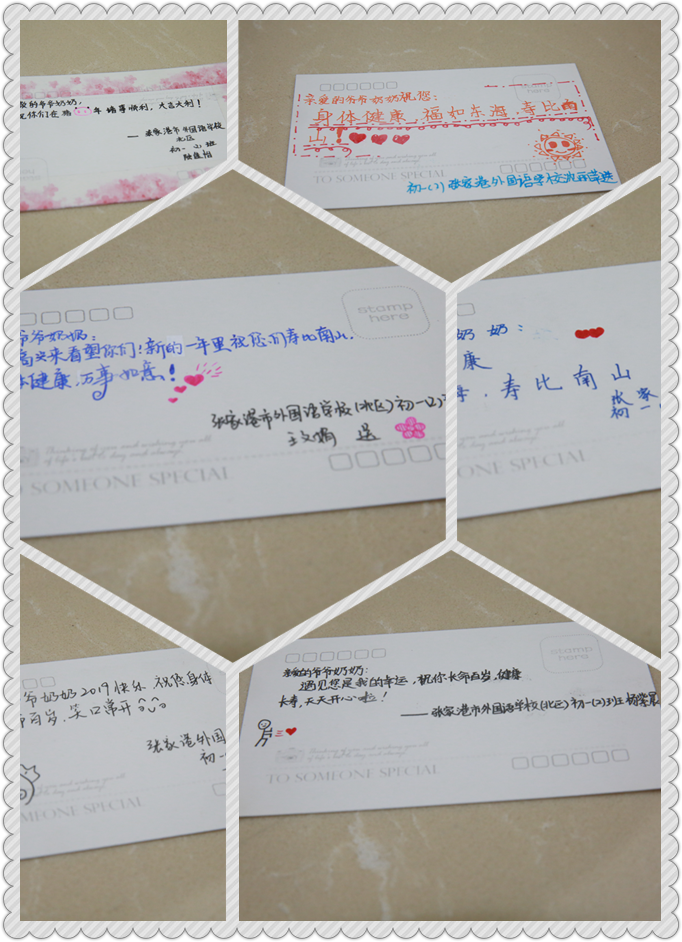 的爷爷奶奶，
祝你们在
年 诸事顺利，大吉大利！
—— 张家港市外国语学校
北区
初一（2）班
stamp
here
亲爱的爷爷奶奶祝您：
身体健康，福如东海，寿比南
山！
TO SOMEONE SPECIAL
初一（2）张家港外国语学校
stamp
here
爷爷奶奶：
来看望你们！新的一年里祝您们寿比南山，
体健康，万事如意！
张家港市外国语学校（北区）初一（2）
送
Thank you and wishing you all
of life's best, day and always!
TO SOMEONE SPECIAL
奶奶：
康
，寿比南山
张家
初一
ONE SPECIAL
爷奶奶2019快乐 祝您身体
百岁，笑口常开
张家港外国
初一
and wishing you all
day and always!
MEONE SPECIAL
stamp
here
亲爱的爷爷奶奶：
遇见您是我的幸运，祝你长命百岁，健康
长寿，天天开心啦！
—— 张家港市外国语学校（北区）初一（2）班
Thank you and wishing you all
of life's best, day and always!
TO SOMEONE SPECIAL